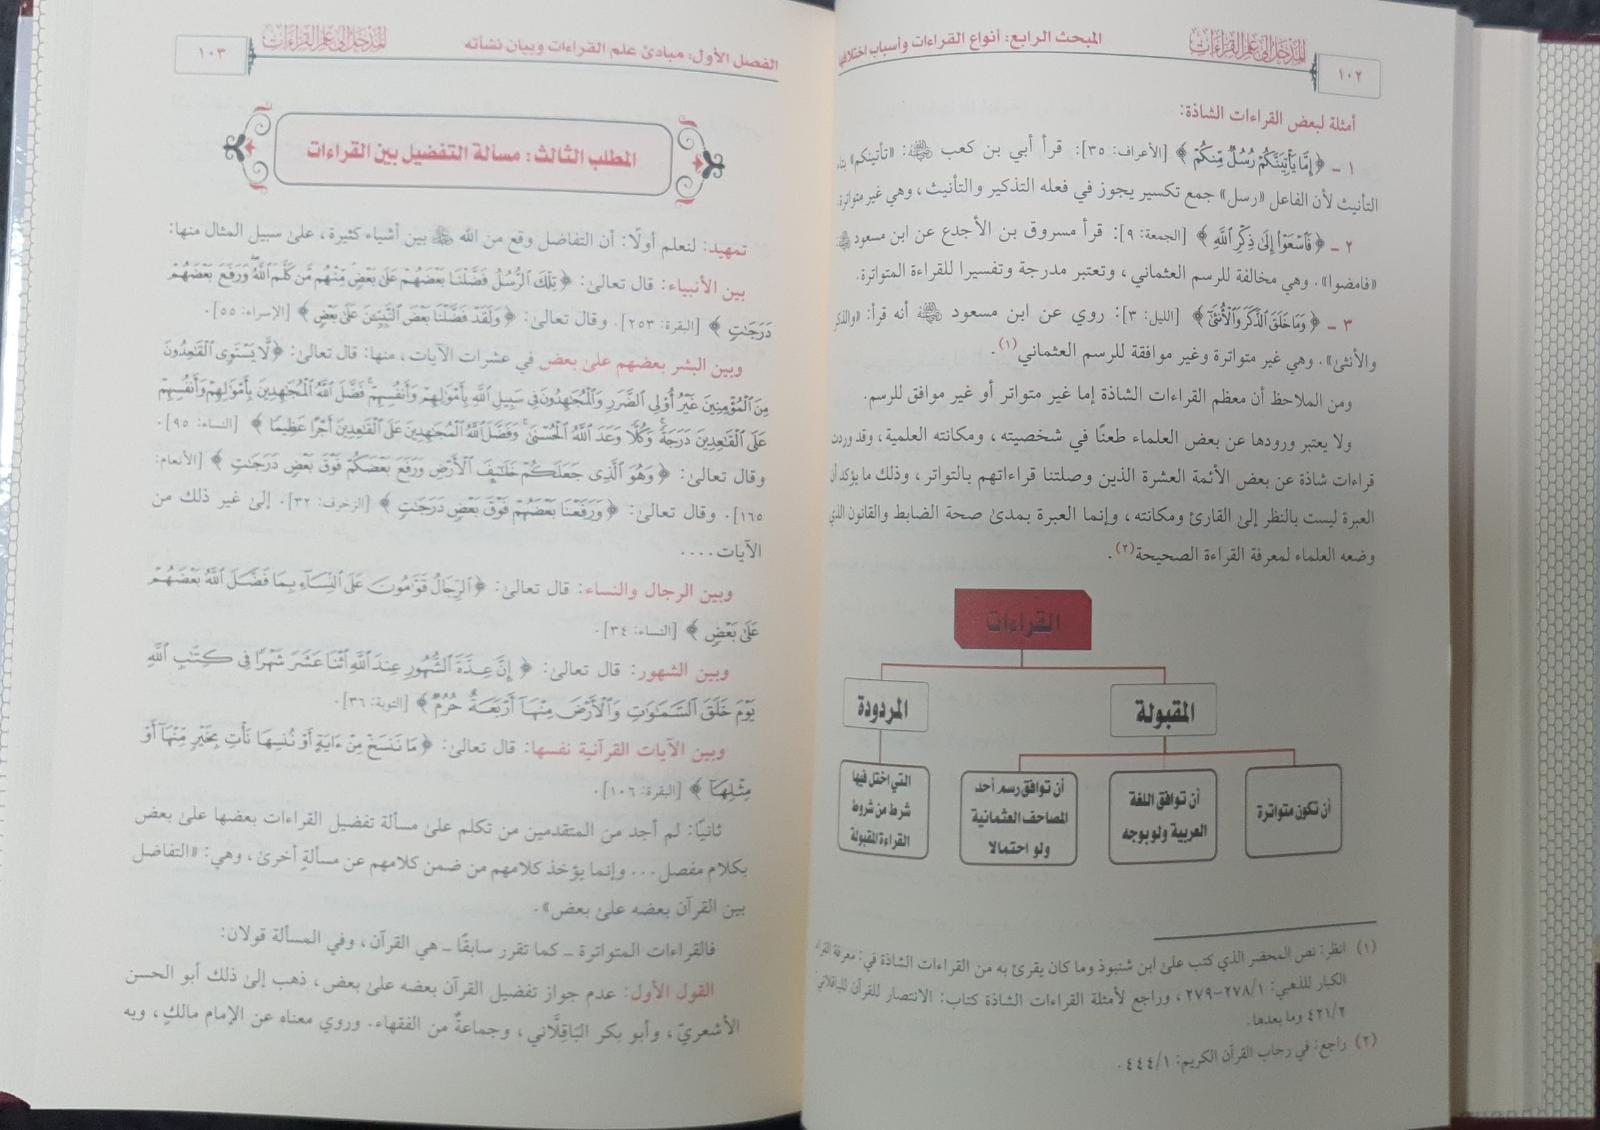 المدخل إلى علم القراءات
١٠٢
المبحث الرابع: أنواع القراءات وأسباب اختلافها
أمثلة لبعض القراءات الشاذة:
١ - ﴿إِمَّا يَأْتِيَنَّكُمْ رُسُلٌ مِّنكُمْ﴾ [الأعراف: ٣٥]: قرأ أبي بن كعب ﷺ: «تأتينكم» بتاء
التأنيث لأن الفاعل «رسل» جمع تكسير يجوز في فعله التذكير والتأنيث، وهي غير متواترة.
٢ - ﴿فَاسْعَوْا إِلَىٰ ذِكْرِ اللَّهِ﴾ [الجمعة: ٩]: قرأ مسروق بن الأجدع عن ابن مسعود
«فامضوا». وهي مخالفة للرسم العثماني، وتعتبر مدرجة وتفسيرا للقراءة المتواترة.
٣ - ﴿وَمَا خَلَقَ الذَّكَرَ وَالْأُنثَىٰ﴾ [الليل: ٣]: روي عن ابن مسعود أنه قرأ: «والذكر
والأنثىٰ». وهي غير متواترة وغير موافقة للرسم العثماني(١).
ومن الملاحظ أن معظم القراءات الشاذة إما غير متواتر أو غير موافق للرسم.
ولا يعتبر ورودها عن بعض العلماء طعنًا في شخصيته، ومكانته العلمية، وقد وردت
قراءات شاذة عن بعض الأئمة العشرة الذين وصلتنا قراءاتهم بالتواتر، وذلك ما يؤكد أن
العبرة ليست بالنظر إلىٰ القارئ ومكانته، وإنما العبرة بمدىٰ صحة الضابط والقانون الذي
وضعه العلماء لمعرفة القراءة الصحيحة(٢).
القراءات
المقبولة
المردودة
أن تكون متواترة
أن توافق اللغة
العربية ولو بوجه
أن توافق رسم أحد
المصاحف العثمانية
ولو احتمالا
التي اختل فيها
شرط من شروط
القراءة المقبولة
(١) انظر: نص المحضر الذي كتب علىٰ ابن شنبوذ وما كان يقرئ به من القراءات الشاذة في: معرفة القراء
الكبار للذهبي: ٢٧٨/١-٢٧٩، وراجع لأمثلة القراءات الشاذة كتاب: الانتصار للقرآن للباقلاني
٤٢١/٢ وما بعدها.
(٢) راجع: في رحاب القرآن الكريم: ٤٤٤/١.
الفصل الأول: مبادئ علم القراءات وبيان نشأته
المدخل إلى علم القراءات
١٠٣
المطلب الثالث: مسألة التفضيل بين القراءات
تمهيد: لنعلم أولًا: أن التفاضل وقع من الله ﷻ بين أشياء كثيرة، علىٰ سبيل المثال منها:
بين الأنبياء: قال تعالىٰ: ﴿تِلْكَ الرُّسُلُ فَضَّلْنَا بَعْضَهُمْ عَلَىٰ بَعْضٍ مِّنْهُم مَّن كَلَّمَ اللَّهُ وَرَفَعَ بَعْضَهُمْ
دَرَجَاتٍ﴾ [البقرة: ٢٥٣]. وقال تعالىٰ: ﴿وَلَقَدْ فَضَّلْنَا بَعْضَ النَّبِيِّنَ عَلَىٰ بَعْضٍ﴾ [الإسراء: ٥٥].
وبين البشر بعضهم علىٰ بعض في عشرات الآيات، منها: قال تعالىٰ: ﴿لَّا يَسْتَوِي الْقَاعِدُونَ
مِنَ الْمُؤْمِنِينَ غَيْرُ أُولِي الضَّرَرِ وَالْمُجَاهِدُونَ فِي سَبِيلِ اللَّهِ بِأَمْوَالِهِمْ وَأَنفُسِهِمْ فَضَّلَ اللَّهُ الْمُجَاهِدِينَ بِأَمْوَالِهِمْ وَأَنفُسِهِمْ
عَلَى الْقَاعِدِينَ دَرَجَةً وَكُلًّا وَعَدَ اللَّهُ الْحُسْنَىٰ وَفَضَّلَ اللَّهُ الْمُجَاهِدِينَ عَلَى الْقَاعِدِينَ أَجْرًا عَظِيمًا﴾ [النساء: ٩٥].
وقال تعالىٰ: ﴿وَهُوَ الَّذِي جَعَلَكُمْ خَلَائِفَ الْأَرْضِ وَرَفَعَ بَعْضَكُمْ فَوْقَ بَعْضٍ دَرَجَاتٍ﴾ [الأنعام:
١٦٥]. وقال تعالىٰ: ﴿وَرَفَعْنَا بَعْضَهُمْ فَوْقَ بَعْضٍ دَرَجَاتٍ﴾ [الزخرف: ٣٢]. إلىٰ غير ذلك من
الآيات....
وبين الرجال والنساء: قال تعالىٰ: ﴿الرِّجَالُ قَوَّامُونَ عَلَى النِّسَاءِ بِمَا فَضَّلَ اللَّهُ بَعْضَهُمْ
عَلَىٰ بَعْضٍ﴾ [النساء: ٣٤].
وبين الشهور: قال تعالىٰ: ﴿إِنَّ عِدَّةَ الشُّهُورِ عِندَ اللَّهِ اثْنَا عَشَرَ شَهْرًا فِي كِتَابِ اللَّهِ
يَوْمَ خَلَقَ السَّمَاوَاتِ وَالْأَرْضَ مِنْهَا أَرْبَعَةٌ حُرُمٌ﴾ [التوبة: ٣٦].
وبين الآيات القرآنية نفسها: قال تعالىٰ: ﴿مَا نَنسَخْ مِنْ ءَايَةٍ أَوْ نُنسِهَا نَأْتِ بِخَيْرٍ مِّنْهَا أَوْ
مِثْلِهَا﴾ [البقرة: ١٠٦].
ثانيًا: لم أجد من المتقدمين من تكلم علىٰ مسألة تفضيل القراءات بعضها علىٰ بعض
بكلام مفصل... وإنما يؤخذ كلامهم من ضمن كلامهم عن مسألةٍ أخرىٰ، وهي: «التفاضل
بين القرآن بعضه علىٰ بعض».
فالقراءات المتواترة - كما تقرر سابقًا - هي القرآن، وفي المسألة قولان:
القول الأول: عدم جواز تفضيل القرآن بعضه علىٰ بعض، ذهب إلىٰ ذلك أبو الحسن
الأشعريّ، وأبو بكر الباقِلَّاني، وجماعةٌ من الفقهاء. وروي معناه عن الإمام مالكٍ، وبه